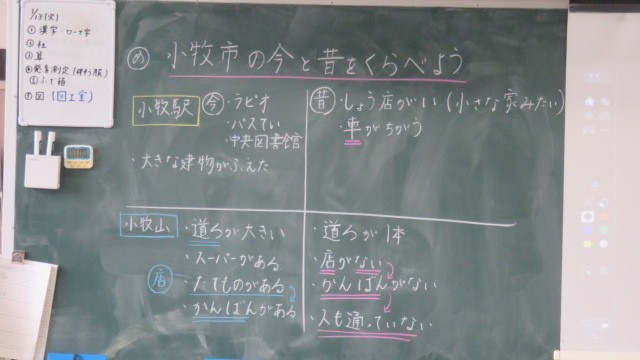 1/13(火)
①漢字 ローマ字
②社
③算
④発育測定(体育服)
⑤ふで箱
⑥図(図工室)
め 小牧市の今と昔をくらべよう
小牧駅
今・ラピオ
・バスてい
・中央図書館
・大きな建物がふえた
昔・しょう店がい(小さな家みたい)
・車がちがう
小牧山
・道ろが大きい
・スーパーがある
店
・たてものがある
・かんばんがある
・道ろが1本
・店がない
・かんばんがない
・人も通っていない